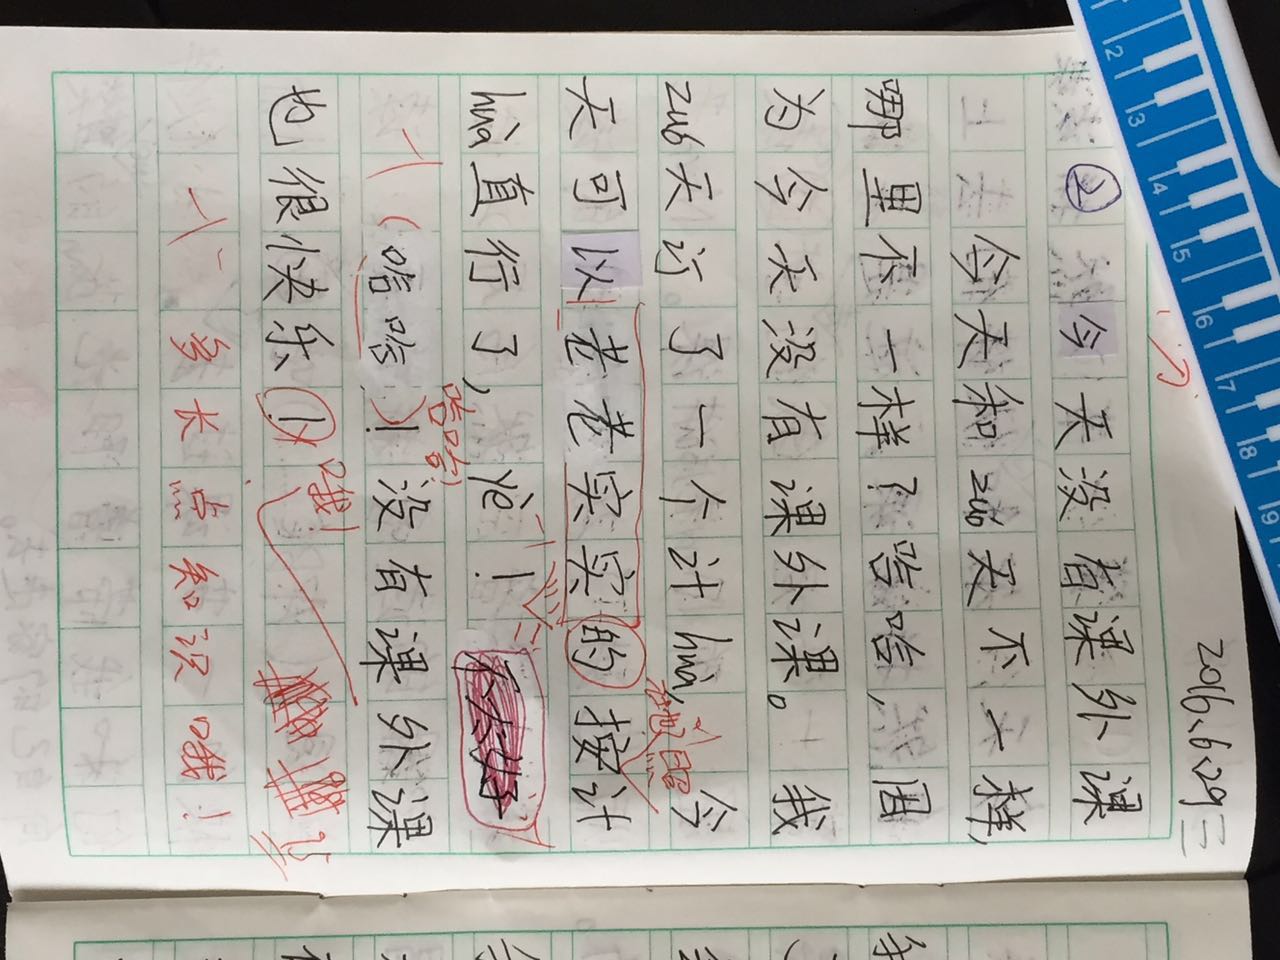 2016、6、29 三
② 今天没有课外课
今天和zuó天不一样，
哪里不一样？哈哈，因
为今天没有课外课。我
zuó天订了一个计huà，今
天可以老老实实的按计
huà直行了，yè！
(哈哈)！没有课外课
也很快乐！哦！
多长点知识哦！
12 13 14 15 16 17 18 19